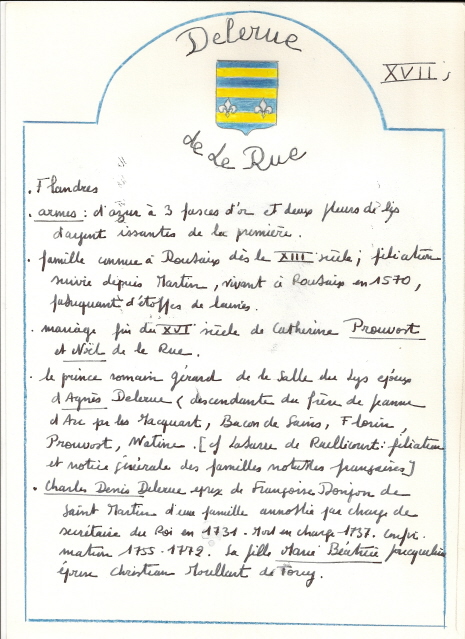 Delerue
XVII s
de Le Rue
. Flandres
. armes : d'azur à 3 fasces d'or et deux fleurs de lys
d'argent issantes de la première.
. famille connue à Roubaix dès le XIII siècle ; filiation
suivie depuis Martin, vivant à Roubaix en 1570,
fabriquant d'étoffes de laines.
. mariage fin du XVI siècle de Catherine Prouvost
et Noël de le Rue.
. le prince romain gérard de la Salle du Lys époux
d'Agnès Delerue (descendante du frère de Jeanne
d'Arc par les Macquart, Bacon de Sains, Florin,
Prouvost, Watine. [cf Lasarre de Raellicourt : filiation
et notice générale des familles notables françaises]
. Charles Denis Delerue époux de Françoise Bonjon de
Saint Martin d'une famille annoblie par charge de
secrétaire du Roi en 1731. Mort en charge 1737. Confir-
mation 1755-1772. Sa fille Marie Béatrice Jacqueline
épouse Christian Moullart de Torcy.